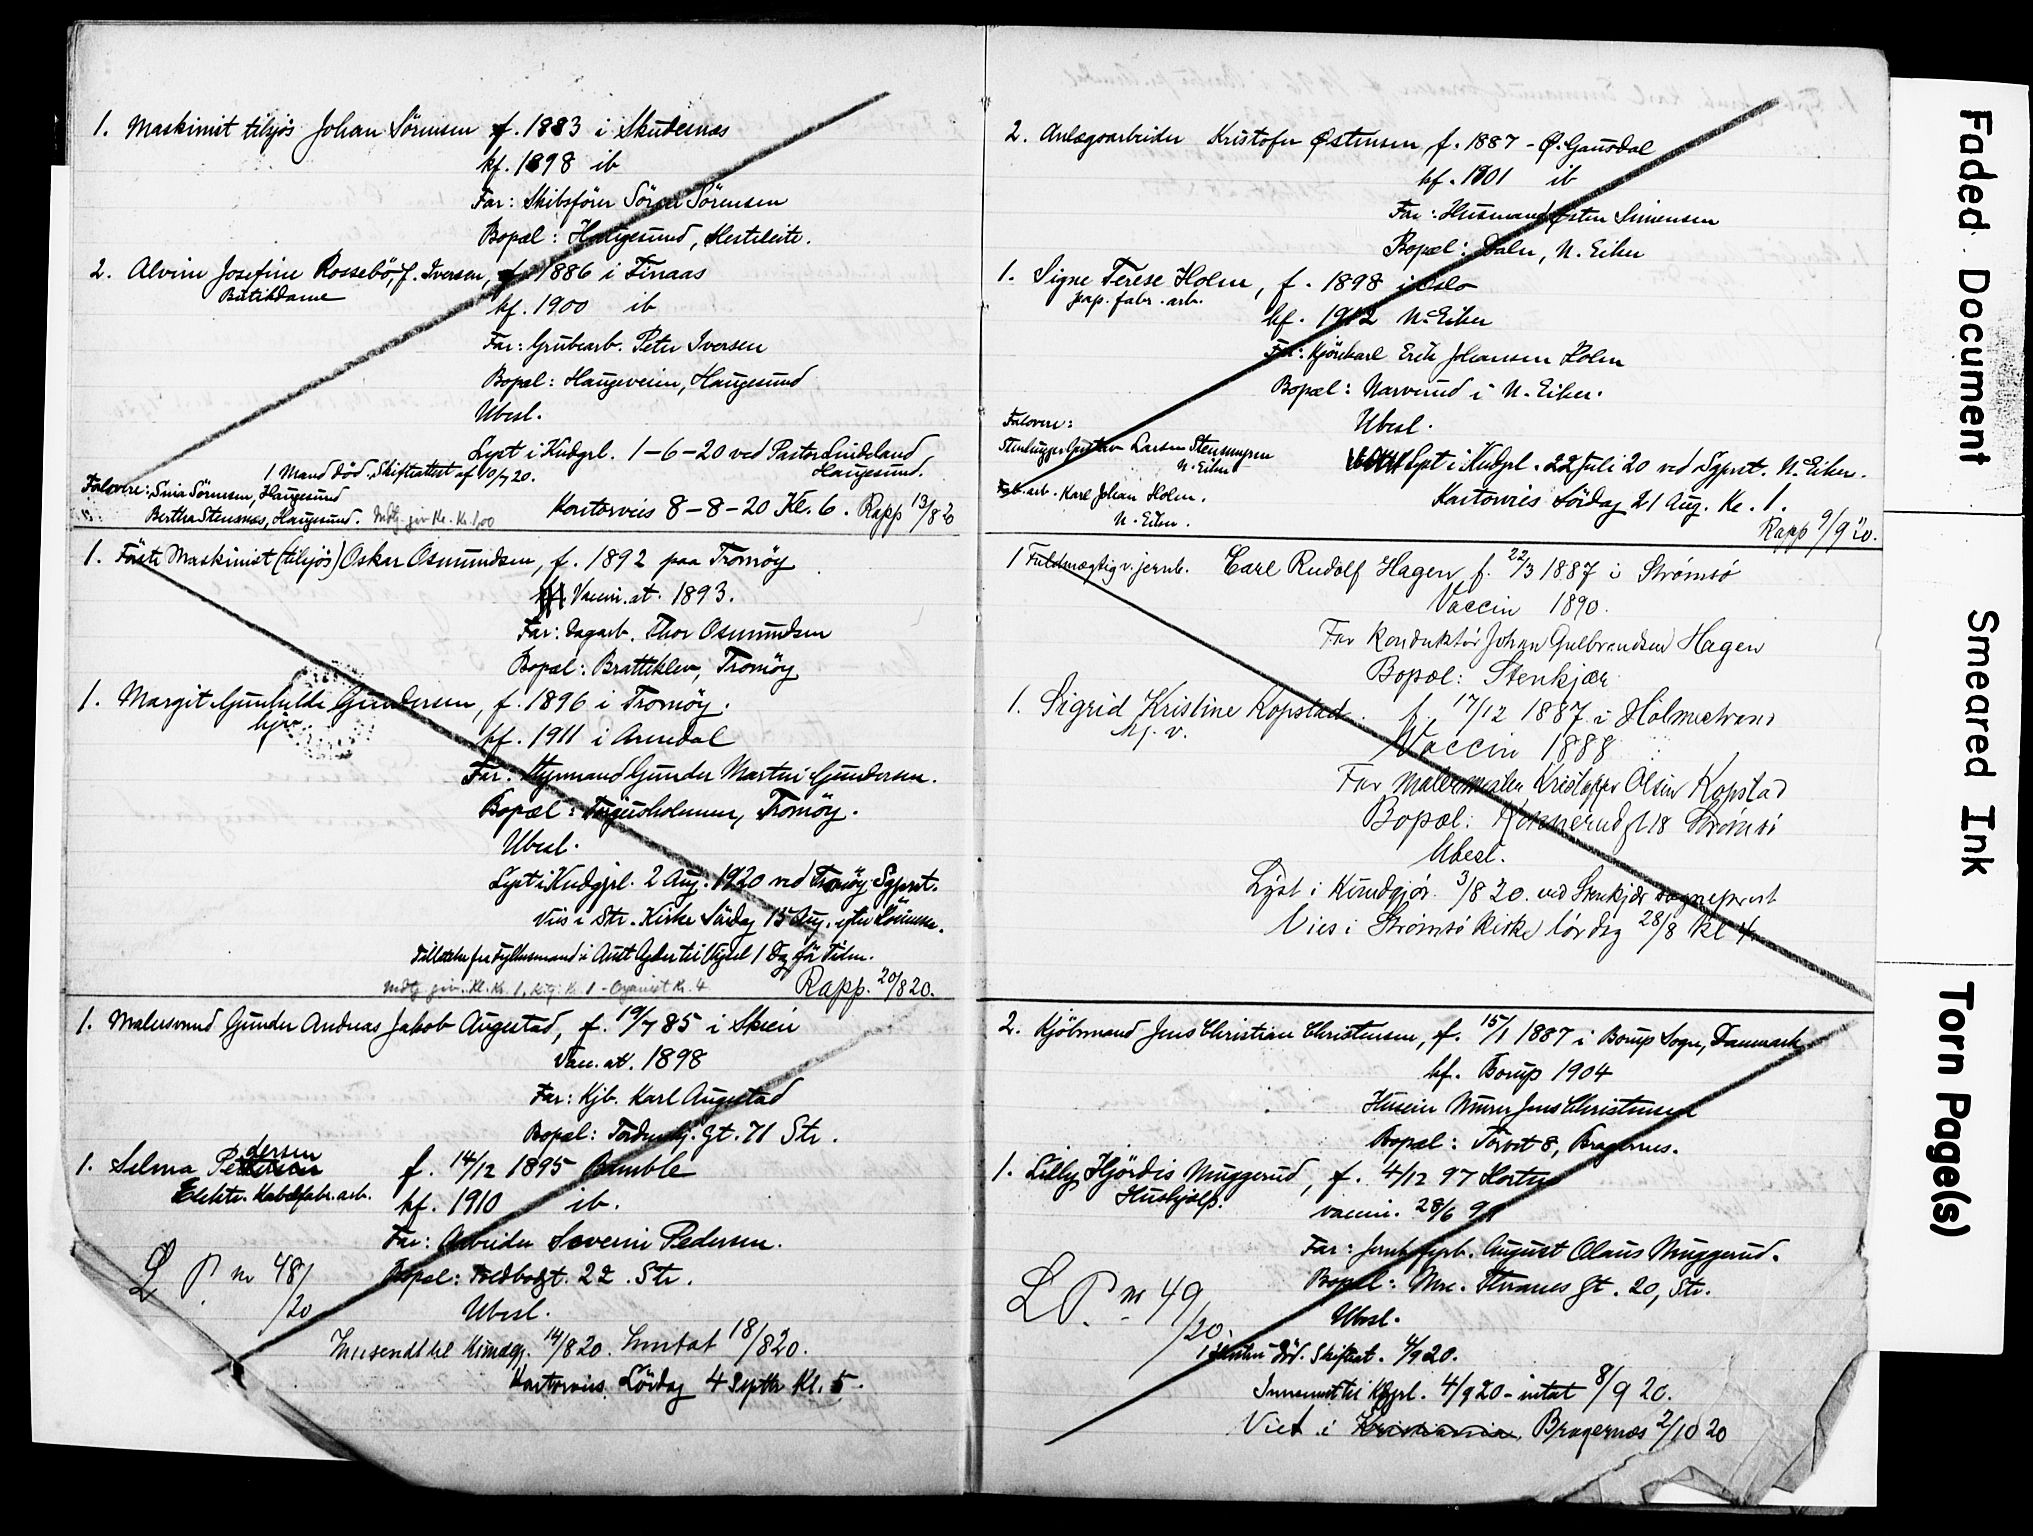 1. Maskinist tilsjøs Johan Sörensen f. 1883 i Skudesnæs
kf. 1898 ib
Far: Skibsförer Sören Sörensen
Bopæl: Haugesund,
2. Alvine Josefine Rossebö, f. Iversen, f. 1886 i Finaas
Butikdame
kf. 1900 ib
Far: Grubearb. Peter Iversen
Bopæl: Haugeveien, Haugesund
Ubesl.
Lyst i Kudgl. 1-6-20 ved Pastor Lindeland
Haugesund.
1 Mand död. Skifteattest af 10/7 20.
Falovere: Sina Sörensen, Haugesund
Bertha Stensnæs, Haugesund. Mdtg. giv. Kl. Kr. 1,00
Kontorvies 8-8-20 Kl. 6. Rapp 13/8 20
1. Förste Maskinist (tilsjøs) Oskar Osmundsen, f. 1892 paa Tromöy
Vaccin. at. 1893.
Far: Dagarb. Thor Osmundsen
Bopæl: Bratteklev, Tromöy
1. Margit Gunhilde Gundersen, f. 1896 i Tromöy.
hjv.
kf. 1911 i Arendal
Far: Styrmand Gunder Martin Gundersen.
Bopæl: Torjusholmen, Tromöy.
Ubesl.
Lyst i Kudgjrl. 2 Aug. 1920 ved Tromöy Sgprst.
Vies i Str. Kirke Söndag 15 Aug. efter
Tilladelse fra Fylkesmand i Aust Agder til Vigsel 1 Dag för Tiden.
Mdtg. giv. Kl. Kr. 1, Kig. Kr. 1 - Organist Kr. 4
Rapp. 20/8 20.
1. Malersvend Gunder Andreas Jakob Augestad, f. 19/7 85 i Skien
Vac. at. 1898
Far: Kjb. Karl Augestad
Bopæl: Tordenskj. Gt. 71 Str.
1. Selma Pedersen f. 14/12 1895 Bamble
Elektr. Kabelfabr. arb.
kf. 1910 ib.
Far: Arbeider Severin Pedersen.
L P. nr 48/20
Bopæl: Toldbodgt. 22. Str.
Ubesl.
Innsendt til Kundgj. 14/8 20. Inntat 18/8 20.
Kontorvies Lördag 4 Septbr Kl. 5.
2. Anlægsarbeider Kristofer Østensen, f. 1887 - Ø. Gausdal
kf. 1901 ib
Far: Husmand Østen Simensen
Bopæl: Daler, N. Eiker
1. Signe Terese Holm, f. 1898 i Oslo
pap. fabr. arb.
kf. 1912 N. Eiker
Far: Kjörekarl Erik Johansen Holm
Bopæl: Narverud i N. Eiker.
Ubesl.
Falovere:
Stenhugger Gustav Larsen Stensengen
N. Eiker
Fab. arb. Karl Johan Holm.
N. Eiker.
Lyst i Kudgl. 22 Juli 20 ved Sgprst. N. Eiker.
Kontorvies Lördag 21 Aug. Kl. 1.
Rapp 9/9 20.
1 Fuldmægtig v. jernb. Carl Rudolf Hagen f. 22/3 1887 i Strømsø
Vaccin 1890.
Far Konduktör Johan Gulbrandsen Hagen
Bopæl: Stenkjær
1. Sigrid Kristine Kopstad. f. 17/12 1887 i Holmestrand
Hj. v.
Vaccin 1888
Far Malermester Kristoffer Olsen Kopstad
Bopæl: Konnerudgt. 18 Strømsö
Ubesl.
Lyst i Kundgjör. 3/8 20. ved Stenkjær sogneprest
Vies i Strømsö Kirke lördag 28/8 Kl 4
2. Kjöbmand Jens Christian Christensen, f. 15/1 1887 i Borup Sogn, Danmark
kf. Borup 1904
Huseier Murer Jens Christensen
Bopæl: Torvet 8, Bragernes.
1. Lilly Hjördis Muggerud, f. 4/12 97 Horten
Hushjælp.
vaccin. 28/6 98
Far: Jernb. fyrb. August Olaus Muggerud.
L P. nr 49/20
Bopæl: Mrc. Thranes Gt. 20, Str.
Ubesl.
död. Skifteat. 4/9 20.
Innsendt til Kgjrl. 4/9 20 - intat 8/9 20.
Viet i Kristiania, Bragernæs 2/10 20
Faded Document
Smeared Ink
Torn Page(s)